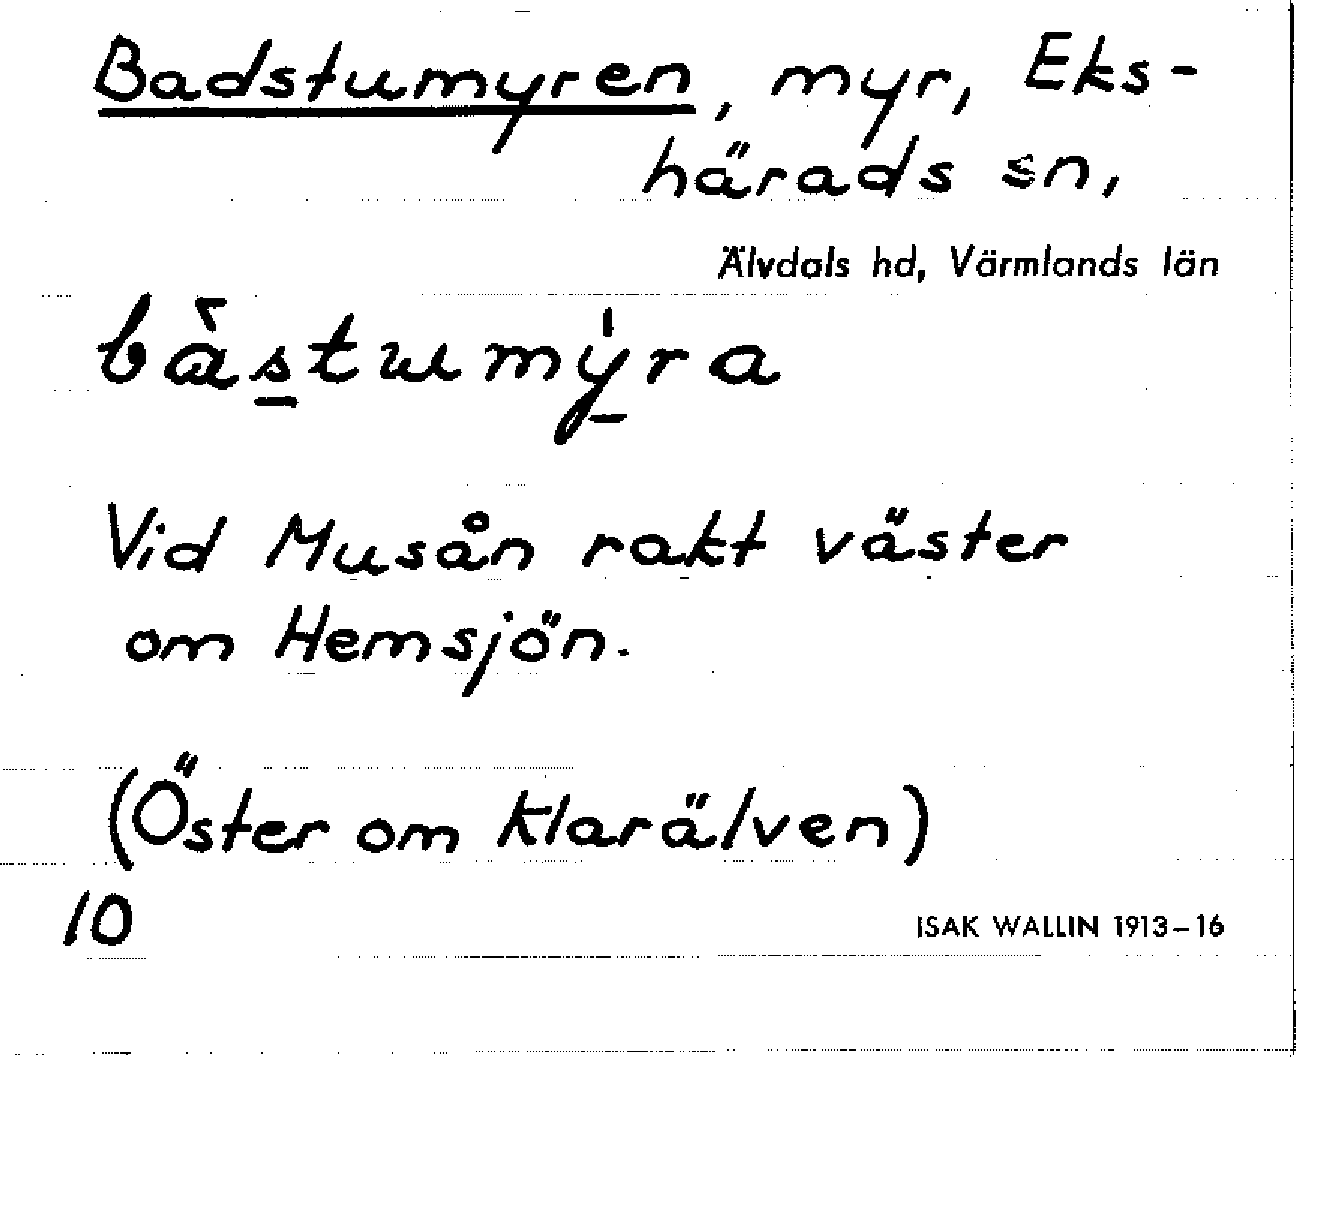 Badstumyren, myr, Eks-
härads sn,
Älvdals hd, Värmlands län
bàstumýra
Vid Musån rakt väster
om Hemsjön.
(Öster om Klarälven)
10
ISAK WALLIN 1913–16